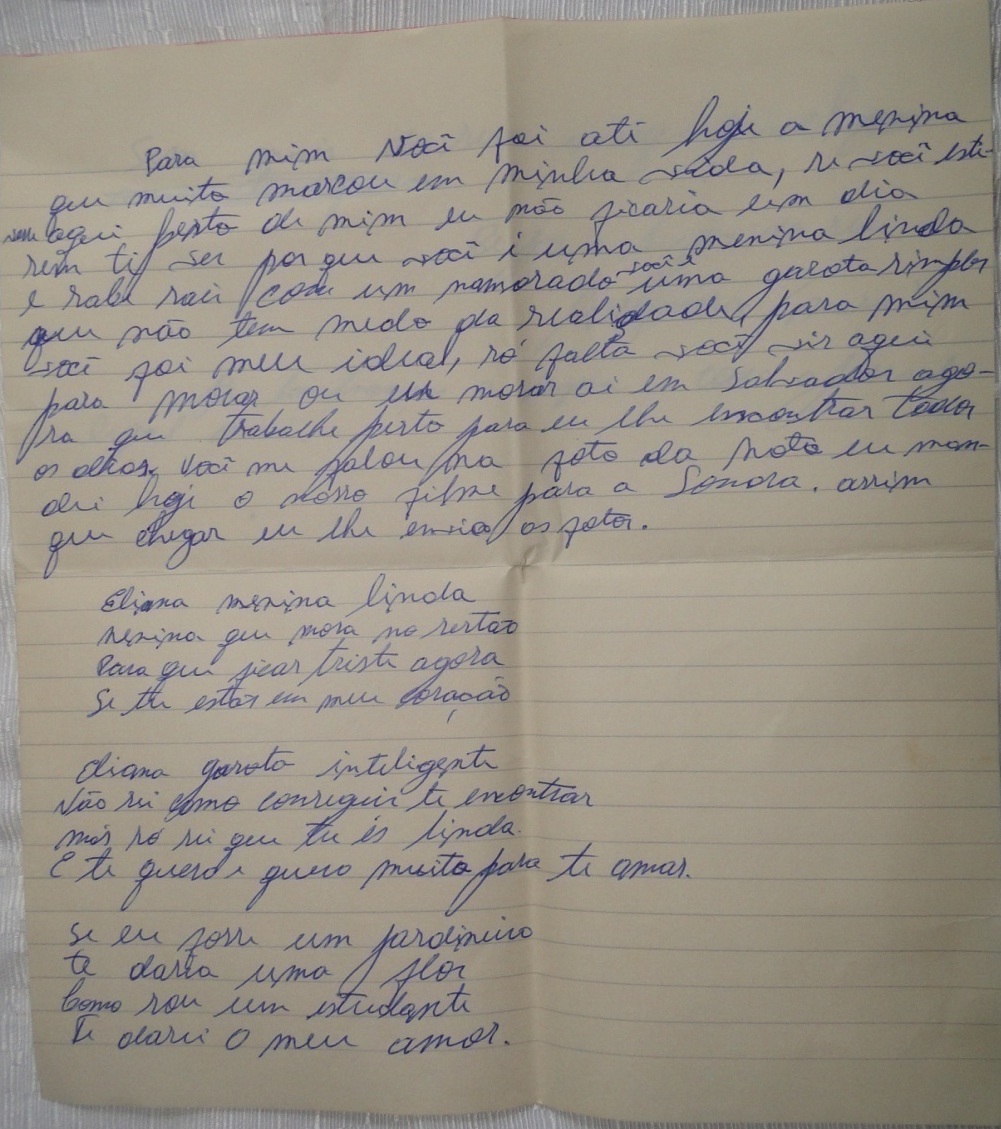 Para mim você foi até hoje a menina
que muito marcou em minha vida, se você esti-
vesse aqui perto de mim eu não ficaria um dia
sem ti ver porque você é uma menina linda
e sabe sair com um namorado você é uma garota simples
que não tem medo da realidade, para mim
você foi meu ideal, só falta você vir aqui
para morar ou eu morar ai em Salvador ago-
ra que trabalhe perto para eu lhe encontrar todos
os dias, você me falou na foto da moto eu man-
dei hoje o nosso filme para a Sonora. assim
que chegar eu lhe envio os fotos.
Eliana menina linda
menina que mora no sertão
Para que ficar triste agora
Se tu estás em meu coração
Eliana garota inteligente
Não sei como consegui te encontrar
más só sei que tu és linda.
E te quero e quero muito para te amar.
Se eu fosse um jardineiro
te daria uma flor
Como sou um estudante
Te darei o meu amor.